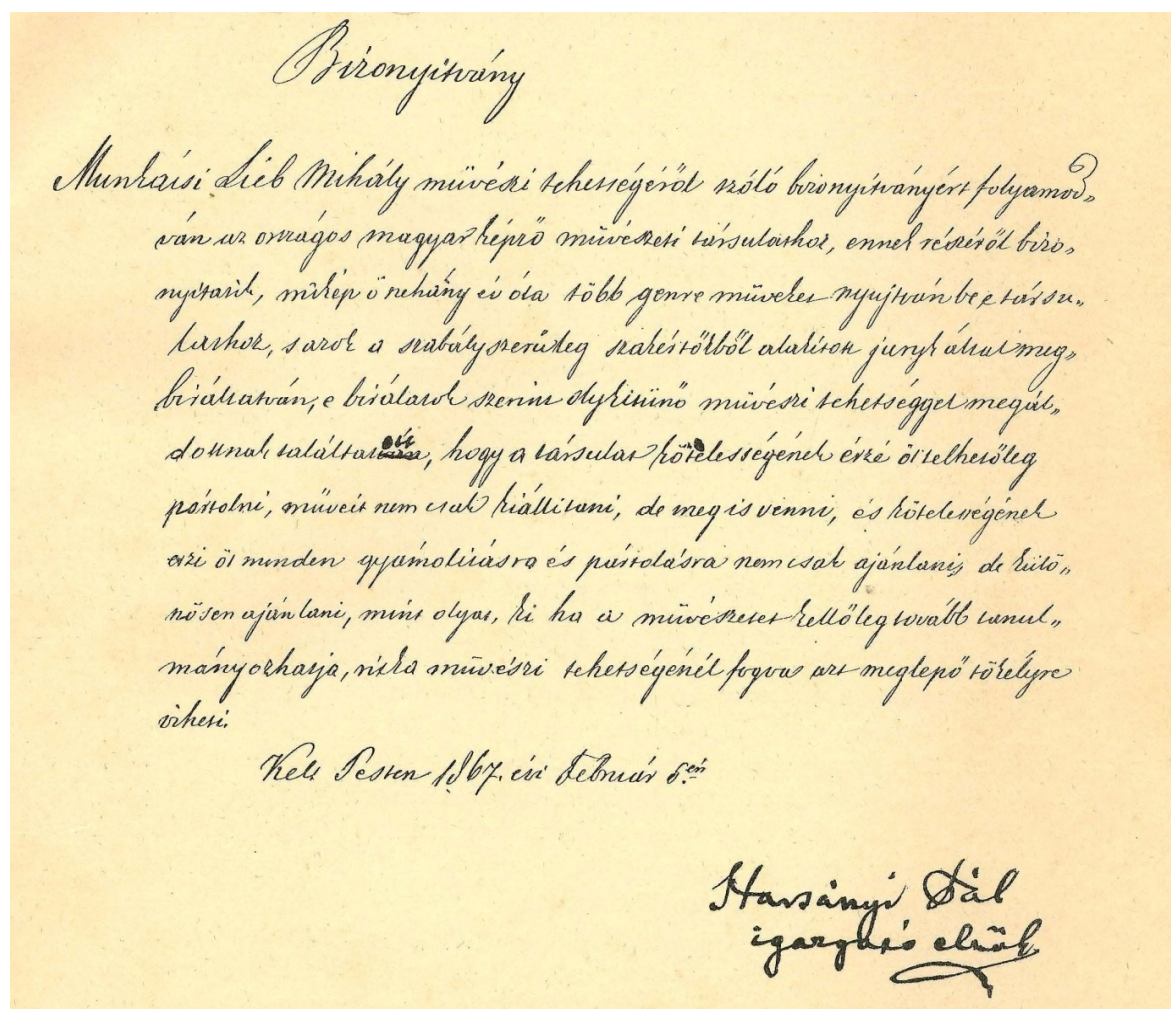 Bizonyitvány
Munkácsi Lieb Mihály müvészi tehetségéröl szóló bizonyítványért folyamod„
ván az országos magyar képző müvészeti társulathoz, ennek részéről bizo„
nyitatik, mikép ő nehány év óta több genre müveket nyujtván be e társu„
lathoz, s azok a szabályszerüleg szakértőkből alakitott jury által meg„
biráltatván, e birálatok szerint oly kitünő müvészi tehetséggel megál„
dottnak találtatott, hogy a társulat kötelességének érzé őt telhetőleg
pártolni, müveit nem csak kiállitani, de meg is venni, és kötelességének
érzi őt minden gyámolitásra és pártolásra nem csak ajánlani, de külö„
nösen ajánlani, mint olyat, ki ha a müvészetet kellőleg tovább tanul„
mányozhatja, ritka müvészi tehetségénél fogva azt meglepő tökélyre
viheti.
Kelt Pesten 1867. évi Február 5.én
Harsányi Pál
igazgató elnök